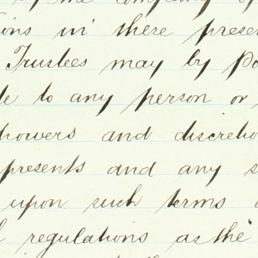 ions in these presen
Trustees may by Po
de to any person or
powers and discretio
presents and any s
upon such terms
regulations as the